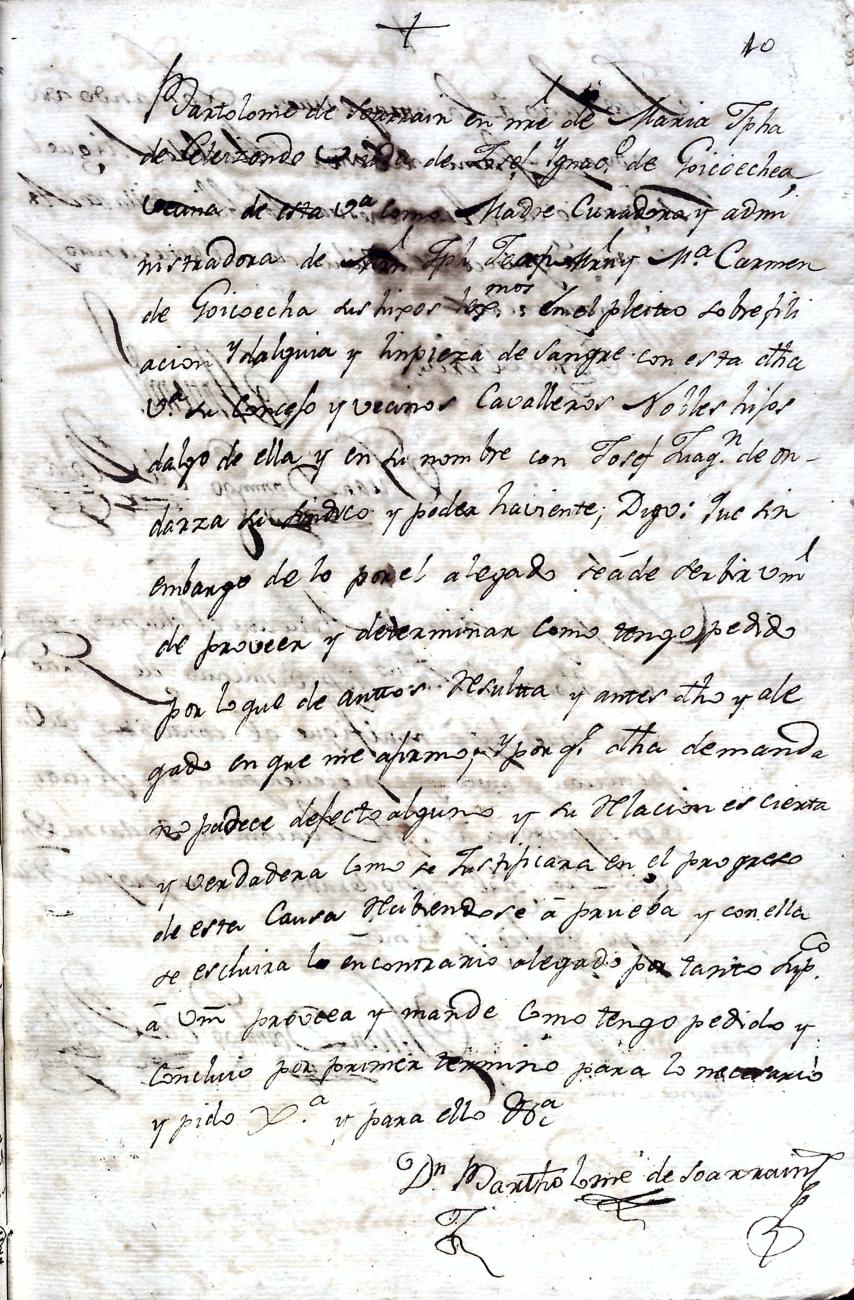 10
Bartolome de Soarrain en nre de Maria Jpha
de Leterzondo Viuda de Josef Ygnac.º de Goicoechea
vecina de esta v.ª como Madre Curadora y admi
nistradora de Jph Mrñ y M.ª Carmen
de Goicoecha sus hixos lex.mos en el pleitto sobre fili
acion Ydalguia y linpieza de sangre con esta dha
v.ª su Concejo y vecinos Cavalleros Nobles hijos
dalgo de ella y en su nombre con Josef Juaq.n de on-
darza su Sindico y poder haviente; Digo: que sin
embargo de lo por el alegado seá de serbir vmd
de proveer y determinar como tengo pedido
por lo que de auttos Resultta y antes dho y ale
gado en que me afirmo; Y por q.e dha demanda
no padece defecto alguno y su Relacion es cierta
y verdadera como se Justificara en el progreso
de esta Causa Rabiendose á prueba y con ella
se escluira lo encontrario alegado por tanto Sup.co
á Vm provea y mande como tengo pedido y
concluio por primer termino para lo necesario
y pido x.ª y para ello &c.ª
Dn Bartholome de Soarrain